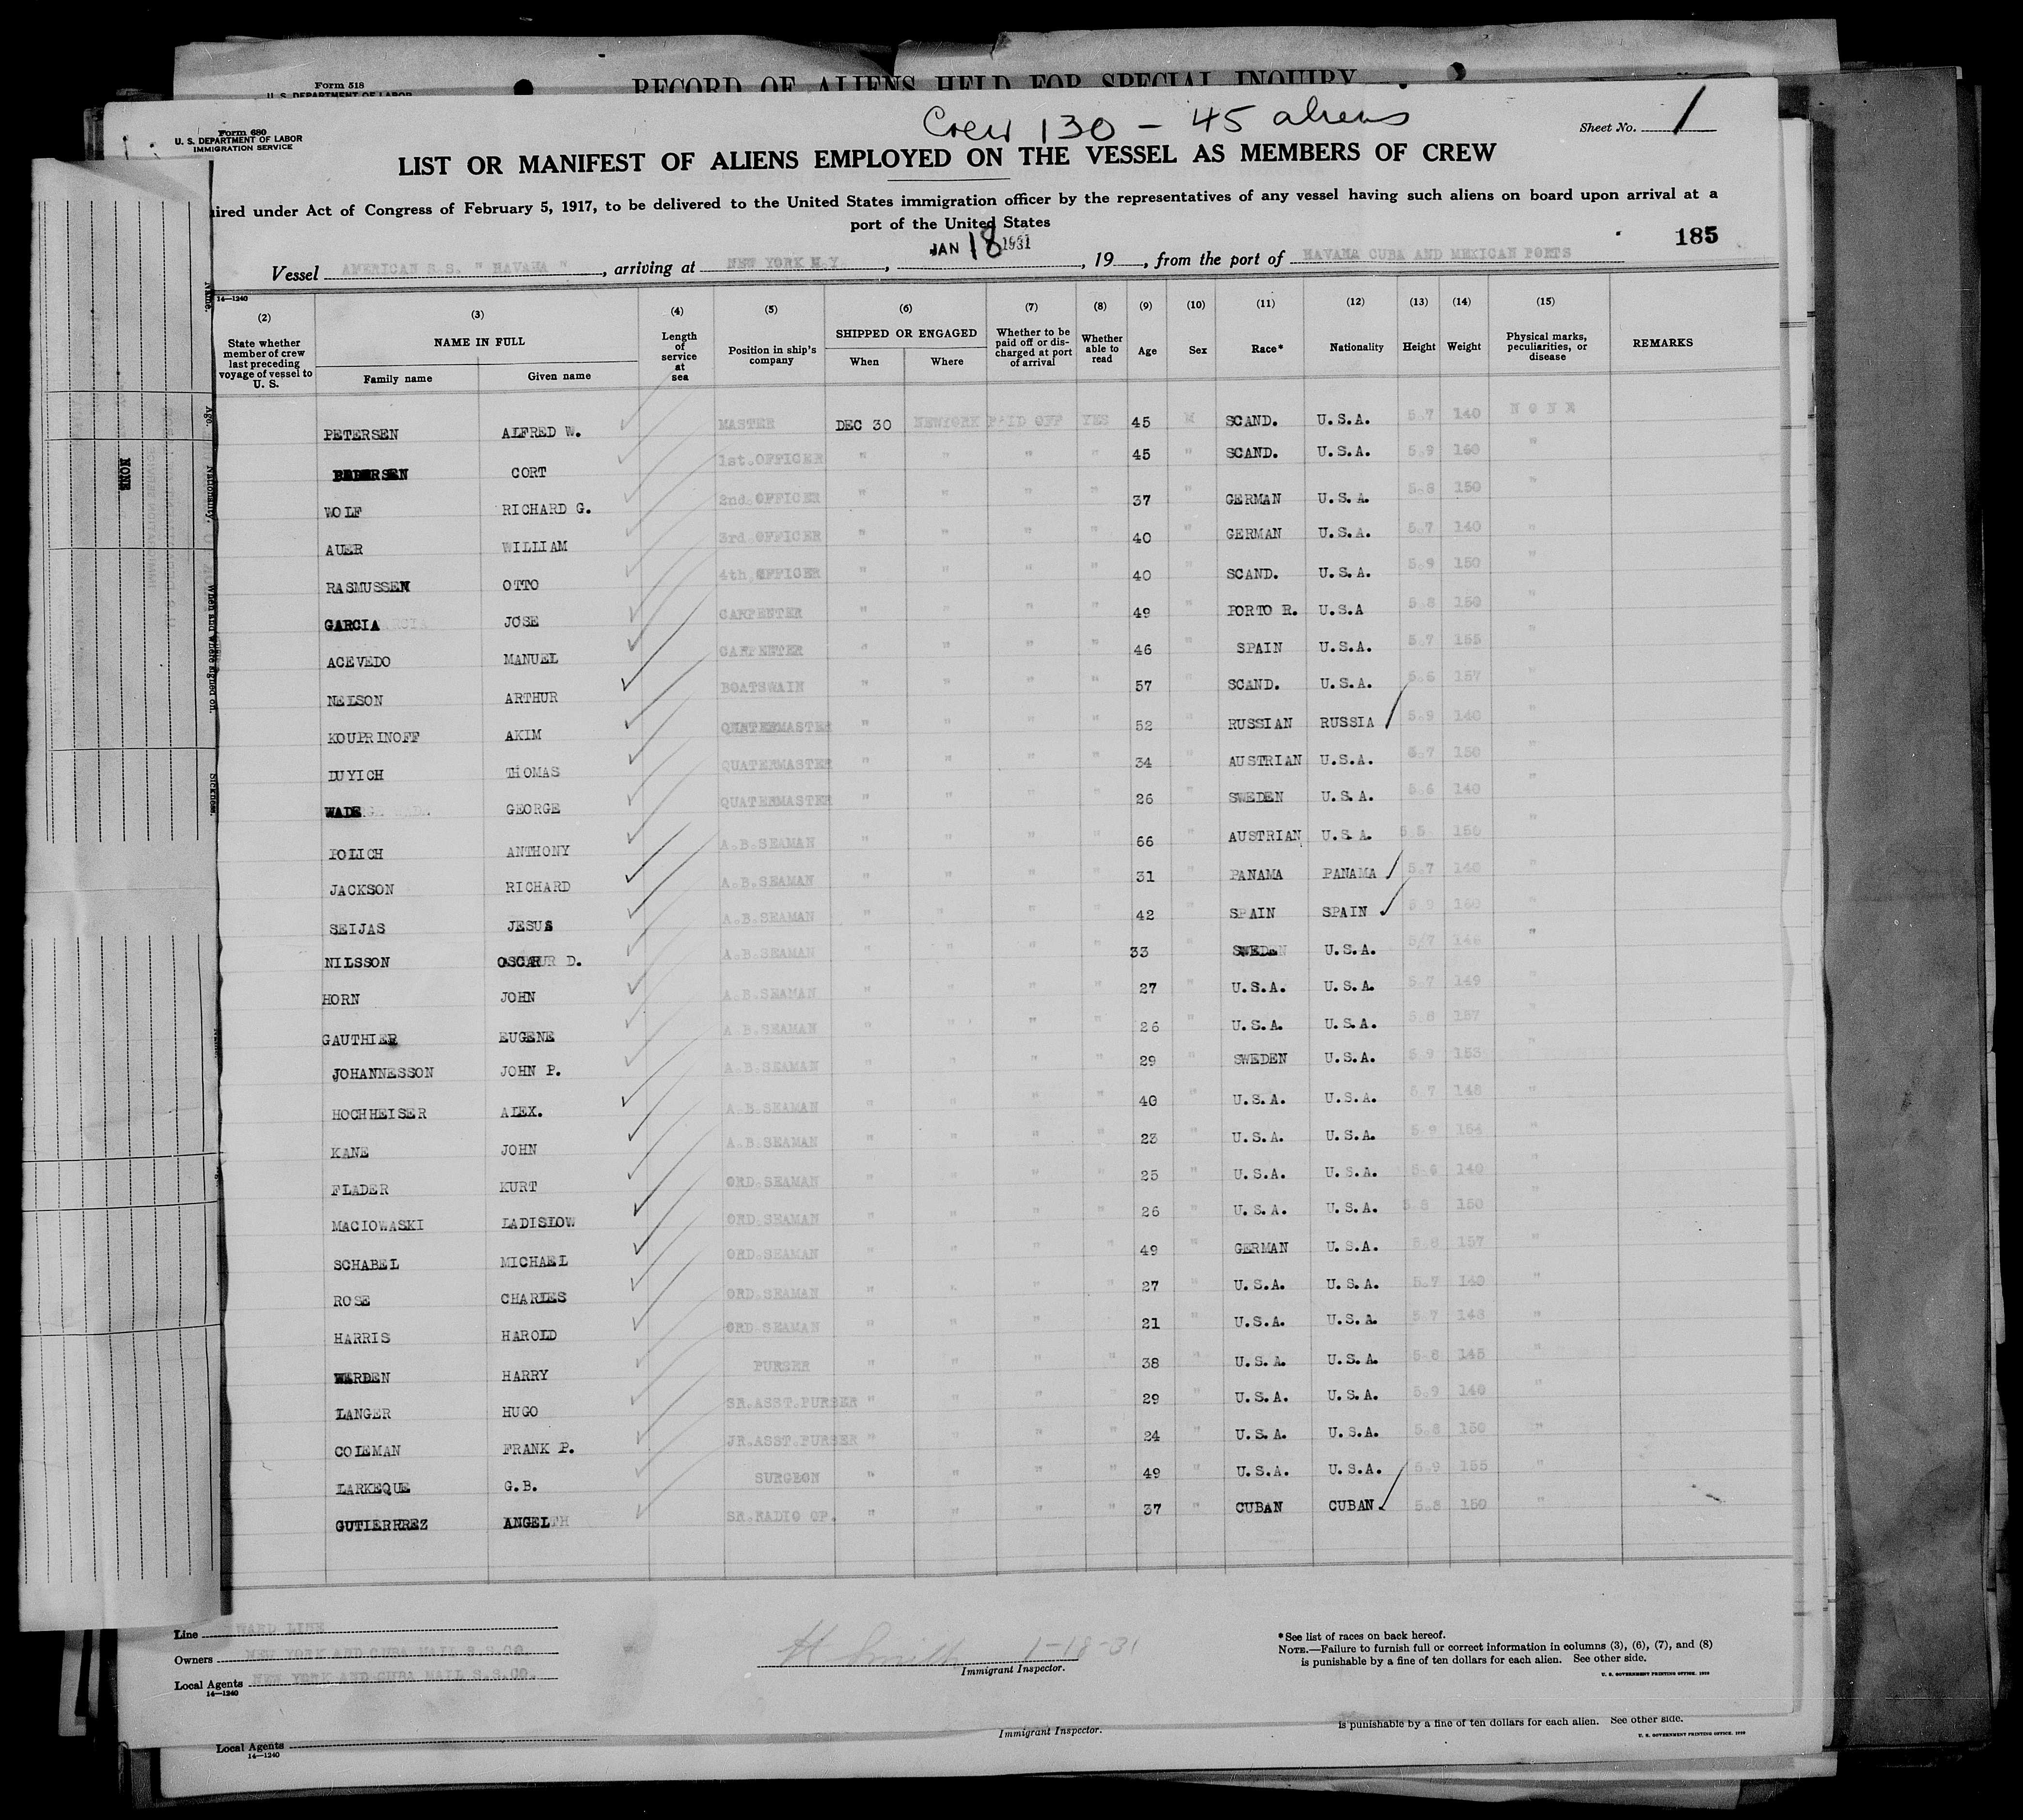 Form 518
U. S. DEPARTMENT OF LABOR
RECORD OF ALIENS HELD FOR SPECIAL INQUIRY
Crew 130 - 45 aliens
Form 680
U. S. DEPARTMENT OF LABOR
IMMIGRATION SERVICE
Sheet No. 1
LIST OR MANIFEST OF ALIENS EMPLOYED ON THE VESSEL AS MEMBERS OF CREW
ired under Act of Congress of February 5, 1917, to be delivered to the United States immigration officer by the representatives of any vessel having such aliens on board upon arrival at a
port of the United States
185
Vessel AMERICAN S.S. " HAVANA ", arriving at NEW YORK N.Y., JAN 18 1931, 19, from the port of HAVANA CUBA AND MEXICAN PORTS
14—1240
(2) (3) (4) (5) (6) (7) (8) (9) (10) (11) (12) (13) (14) (15)
State whether member of crew last preceding voyage of vessel to U. S. NAME IN FULL Family name Given name Length of service at sea Position in ship's company SHIPPED OR ENGAGED When Where Whether to be paid off or discharged at port of arrival Whether able to read Age Sex Race* Nationality Height Weight Physical marks, peculiarities, or disease REMARKS
PETERSEN ALFRED W. MASTER DEC 30 NEWYORK PAID OFF YES 45 M SCAND. U.S.A. 5.7 140 NONE
PEDERSEN CORT 1st.OFFICER " " " " 45 " SCAND. U.S.A. 5.9 160 "
WOLF RICHARD G. 2nd.OFFICER " " " " 37 " GERMAN U.S.A. 5.8 150 "
AUER WILLIAM 3rd.OFFICER " " " " 40 " GERMAN U.S.A. 5.7 140 "
RASMUSSEN OTTO 4th.OFFICER " " " " 40 " SCAND. U.S.A. 5.9 150 "
GARCIA JOSE CARPENTER " " " " 49 " PORTO R. U.S.A 5.8 150 "
ACEVEDO MANUEL CARPENTER " " " " 46 " SPAIN U.S.A. 5.7 155 "
NELSON ARTHUR BOATSWAIN " " " " 57 " SCAND. U.S.A. 5.6 157 "
KOUPRINOFF AKIM QUATERMASTER " " " " 52 " RUSSIAN RUSSIA 5.9 140 "
DUYICH THOMAS QUATERMASTER " " " " 34 " AUSTRIAN U.S.A. 5.7 150 "
WADE GEORGE QUATERMASTER " " " " 26 " SWEDEN U.S.A. 5.6 140 "
POLICH ANTHONY A.B.SEAMAN " " " " 66 " AUSTRIAN U.S.A. 5.5 150 "
JACKSON RICHARD A.B.SEAMAN " " " " 31 " PANAMA PANAMA 5.7 148 "
SEIJAS JESUS A.B.SEAMAN " " " " 42 " SPAIN SPAIN 5.9 160 "
NILSSON OSCAR D. A.B.SEAMAN " " " " 33 " SWEDEN U.S.A. 5/7 146 "
HORN JOHN A.B.SEAMAN " " " " 27 " U.S.A. U.S.A. 5.7 149 "
GAUTHIER EUGENE A.B.SEAMAN " " " " 26 " U.S.A. U.S.A. 5.8 157 "
JOHANNESSON JOHN P. A.B.SEAMAN " " " " 29 " SWEDEN U.S.A. 5.9 153 "
HOCHHEISER ALEX. A.B.SEAMAN " " " " 40 " U.S.A. U.S.A. 5.7 148 "
KANE JOHN A.B.SEAMAN " " " " 23 " U.S.A. U.S.A. 5.9 154 "
FLADER KURT ORD.SEAMAN " " " " 25 " U.S.A. U.S.A. 5.6 140 "
MACIOWASKI LADISLOW ORD.SEAMAN " " " " 26 " U.S.A. U.S.A. 5.8 150 "
SCHABEL MICHAEL ORD.SEAMAN " " " " 49 " GERMAN U.S.A. 5.8 157 "
ROSE CHARLES ORD.SEAMAN " " " " 27 " U.S.A. U.S.A. 5.7 140 "
HARRIS HAROLD ORD.SEAMAN " " " " 21 " U.S.A. U.S.A. 5.7 148 "
WARDEN HARRY PURSER " " " " 38 " U.S.A. U.S.A. 5.8 145 "
LANGER HUGO SR.ASST.PURSER " " " " 29 " U.S.A. U.S.A. 5.9 140 "
COLEMAN FRANK P. JR.ASST.PURSER " " " " 24 " U.S.A. U.S.A. 5.8 150 "
LARKEQUE G.B. SURGEON " " " " 49 " U.S.A. U.S.A. 5.9 155 "
GUTIERRREZ ANGEL SR.RADIO OP. " " " " 37 " CUBAN CUBAN 5.8 150 "
Line WARD LINE
Owners NEW YORK AND CUBA MAIL S.S.CO.
Local Agents NEW YORK AND CUBA MAIL S.S.CO.
14—1240
H Smith 1-18-31
Immigrant Inspector.
*See list of races on back hereof.
NOTE.—Failure to furnish full or correct information in columns (3), (6), (7), and (8)
is punishable by a fine of ten dollars for each alien. See other side.
U. S. GOVERNMENT PRINTING OFFICE. 1930
Local Agents
14—1240
Immigrant Inspector.
is punishable by a fine of ten dollars for each alien. See other side.
U. S. GOVERNMENT PRINTING OFFICE. 1930
Name.
Age.
Nationality.
When and where signed on.
Sickness.
NONE